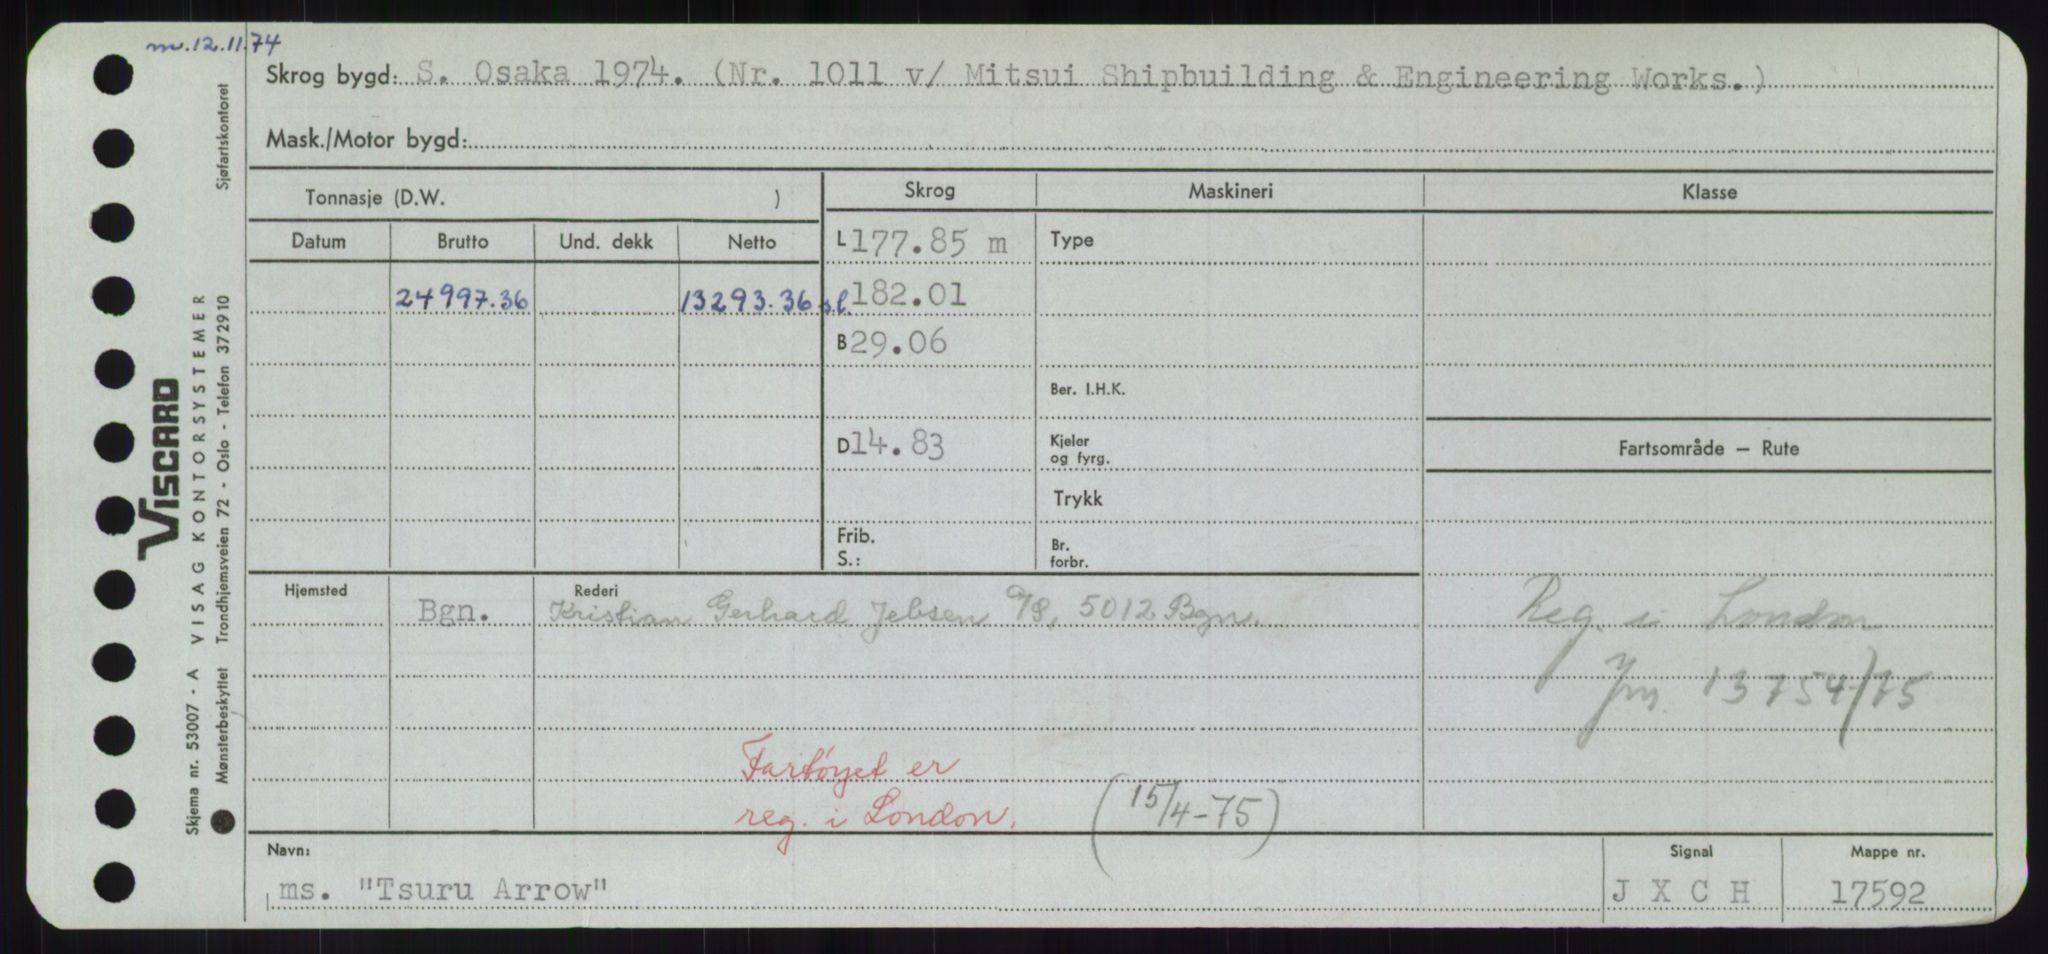 m.12.11.74
Skrog bygd: S. Osaka 1974. (Nr. 1011 v/ Mitsui Shipbuilding & Engineering Works.)
Mask./Motor bygd:
Tonnasje (D.W. )
Skrog Maskineri Klasse
Datum Brutto Und. dekk Netto
L 177.85 m Type
24997.36 13293.36 s.l. 182.01
B 29.06
Ber. I.H.K.
D 14.83 Kjeler og fyrg.
Fartsområde — Rute
Trykk
Frib. S.:
Br. forbr.
Hjemsted Rederi
Bgn. Kristian Gerhard Jebsen A/S, 5012 Bgn.
Reg. i London
Jrn. 13754/75
Fartöyet er
reg. i London. (15/4-75)
Navn: Signal Mappe nr.
ms. "Tsuru Arrow" J X C H 17592
VISCARD
Skjema nr. 53007 - A VISAG KONTORSYSTEMER
Mønsterbeskyttet Trondhjemsveien 72 - Oslo - Telefon 372910 Sjøfartskontoret